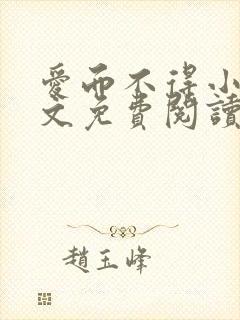 愛而不得小
文免費閱讀
趙玉峰